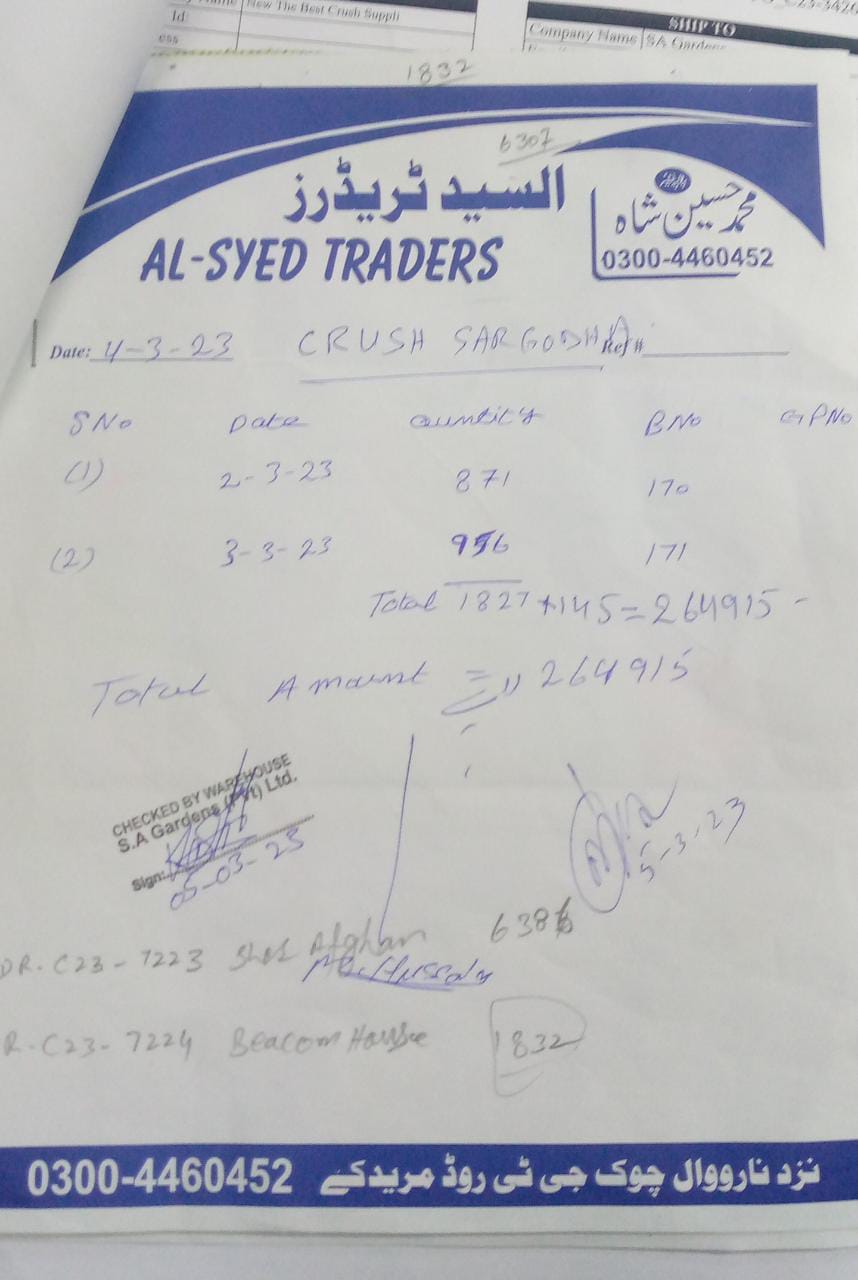 New The Best Crush Suppli
Id:
ess
SHIP TO
Company Name SA Gardens
1832
6307
السید ٹریڈرز
محمد حسین شاہ
AL-SYED TRADERS
0300-4460452
Date: 4-3-23 CRUSH SARGODHA Ref #
S No Date Quntity B No G P No
(1) 2-3-23 871 170
(2) 3-3-23 956 171
Total 1827 *145=264915-
Total Amount = 264915
CHECKED BY WAREHOUSE
S.A Gardens (Pvt) Ltd.
Sign:
05-03-23
5-3-23
DR-C23-7223 Afghan 6386
M. Hussain
R-C23-7224 Beacom House 1832
0300-4460452 نزد نارووال چوک جی ٹی روڈ مریدکے